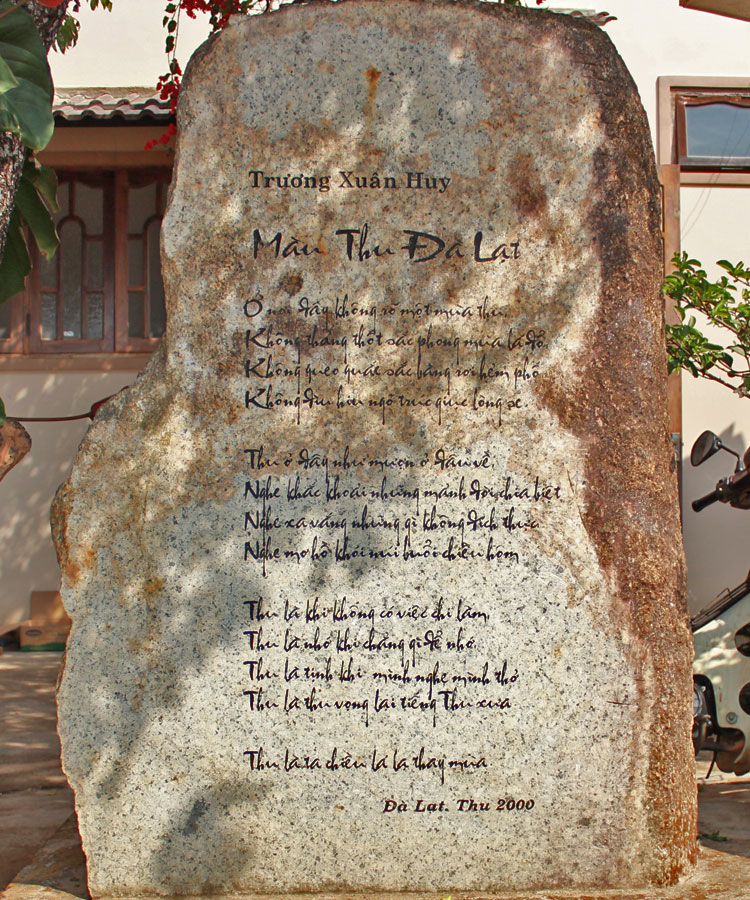 Trương Xuân Huy
Màu Thu Đà Lạt
Ở nơi đây không rõ một mùa thu,
Không thảng thốt sắc phong mùa lá đổ,
Không quẹo quắc sắc bàng rơi hẻm phố
Không đìu hiu ngõ trúc giục lòng se.
Thu ở đây như mượn ở đâu về,
Nghe khắc khoải những mảnh đời chia biệt
Nghe xa vắng những gì không đích thực
Nghe mơ hồ khói núi buổi chiều hôm
Thu là khi không có việc chi làm,
Thu là nhớ khi chẳng gì để nhớ,
Thu là tình khi mình nghe mình thở
Thu là thu vọng lại tiếng Thu xưa
Thu là ta chiều lá lạ thay mùa
Đà Lạt. Thu 2000